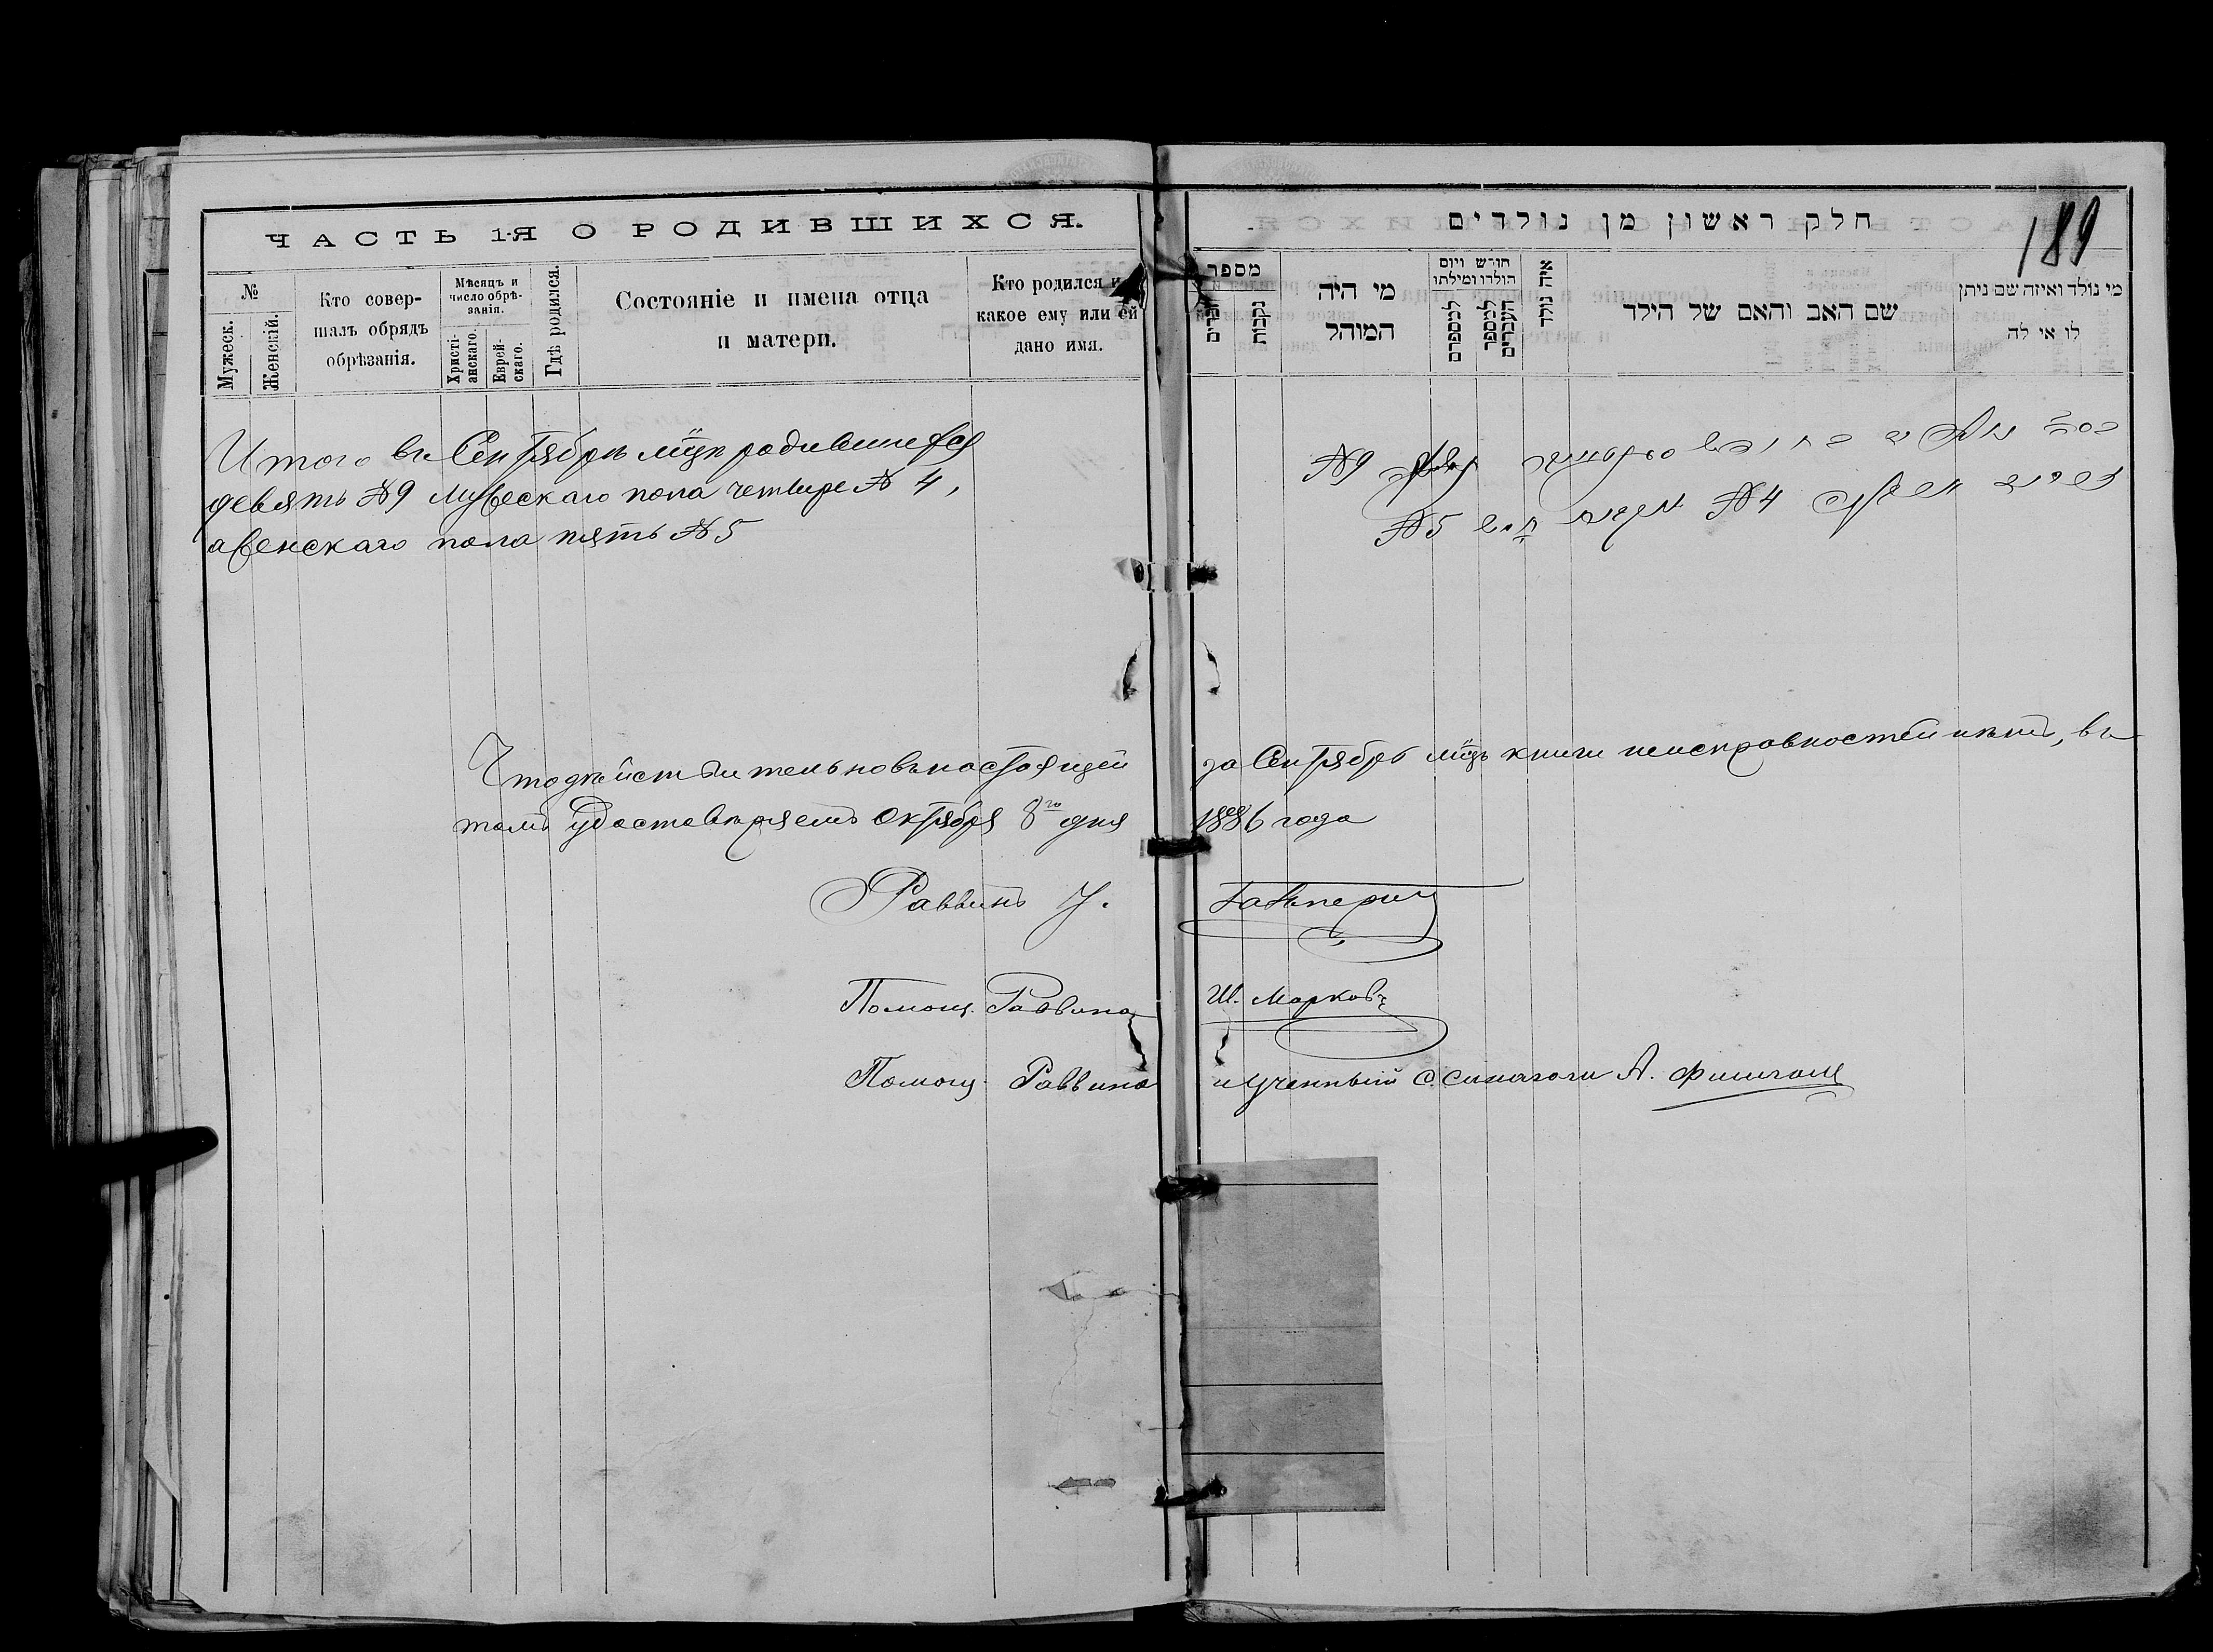 ЧАСТЬ 1-Я О РОДИВШИХСЯ.
№
Мужеск.
Женскій.
Кто совер-
шалъ обрядъ
обрѣзанія.
Мѣсяцъ и
число обрѣ-
занія.
Христі-
анскаго.
Еврей-
скаго.
Гдѣ родился.
Состояніе и имена отца
и матери.
Кто родился и
какое ему или ей
дано имя.
Итого въ Сентябрѣ м-цѣ родившихся
девять №9 мужескаго пола четыре № 4,
а женскаго пола пять №5
חלק ראשון מן נולדים
189
מספר
זכרים
נקבות
מי היה
המוהל
חודש ויום
הולדו ומילתו
למספרם
למספר
העברים
איה נולד
שם האב והאם של הילד
מי נולד ואיזה שם ניתן
לו או לה
№9
№4
חמש №5
Что дѣйствительно въ настоящей за Сентябрь м-цъ книги неисправностей нѣтъ, въ
томъ удостовѣряемъ Октября 8го дня 1886 года
Раввинъ У. Гальперин
Помощ. Раввина Ш. Марковъ
Помощ. Раввина и Ученный с. синагоги А.